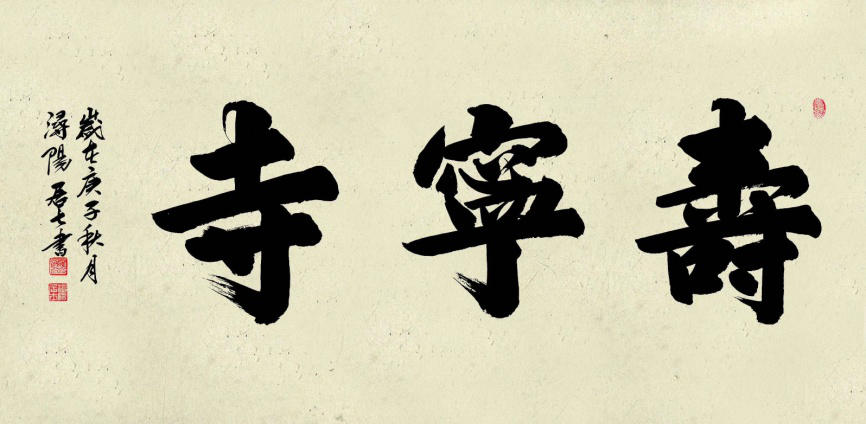 壽寧寺
歲在庚子秋月
潯陽居士書